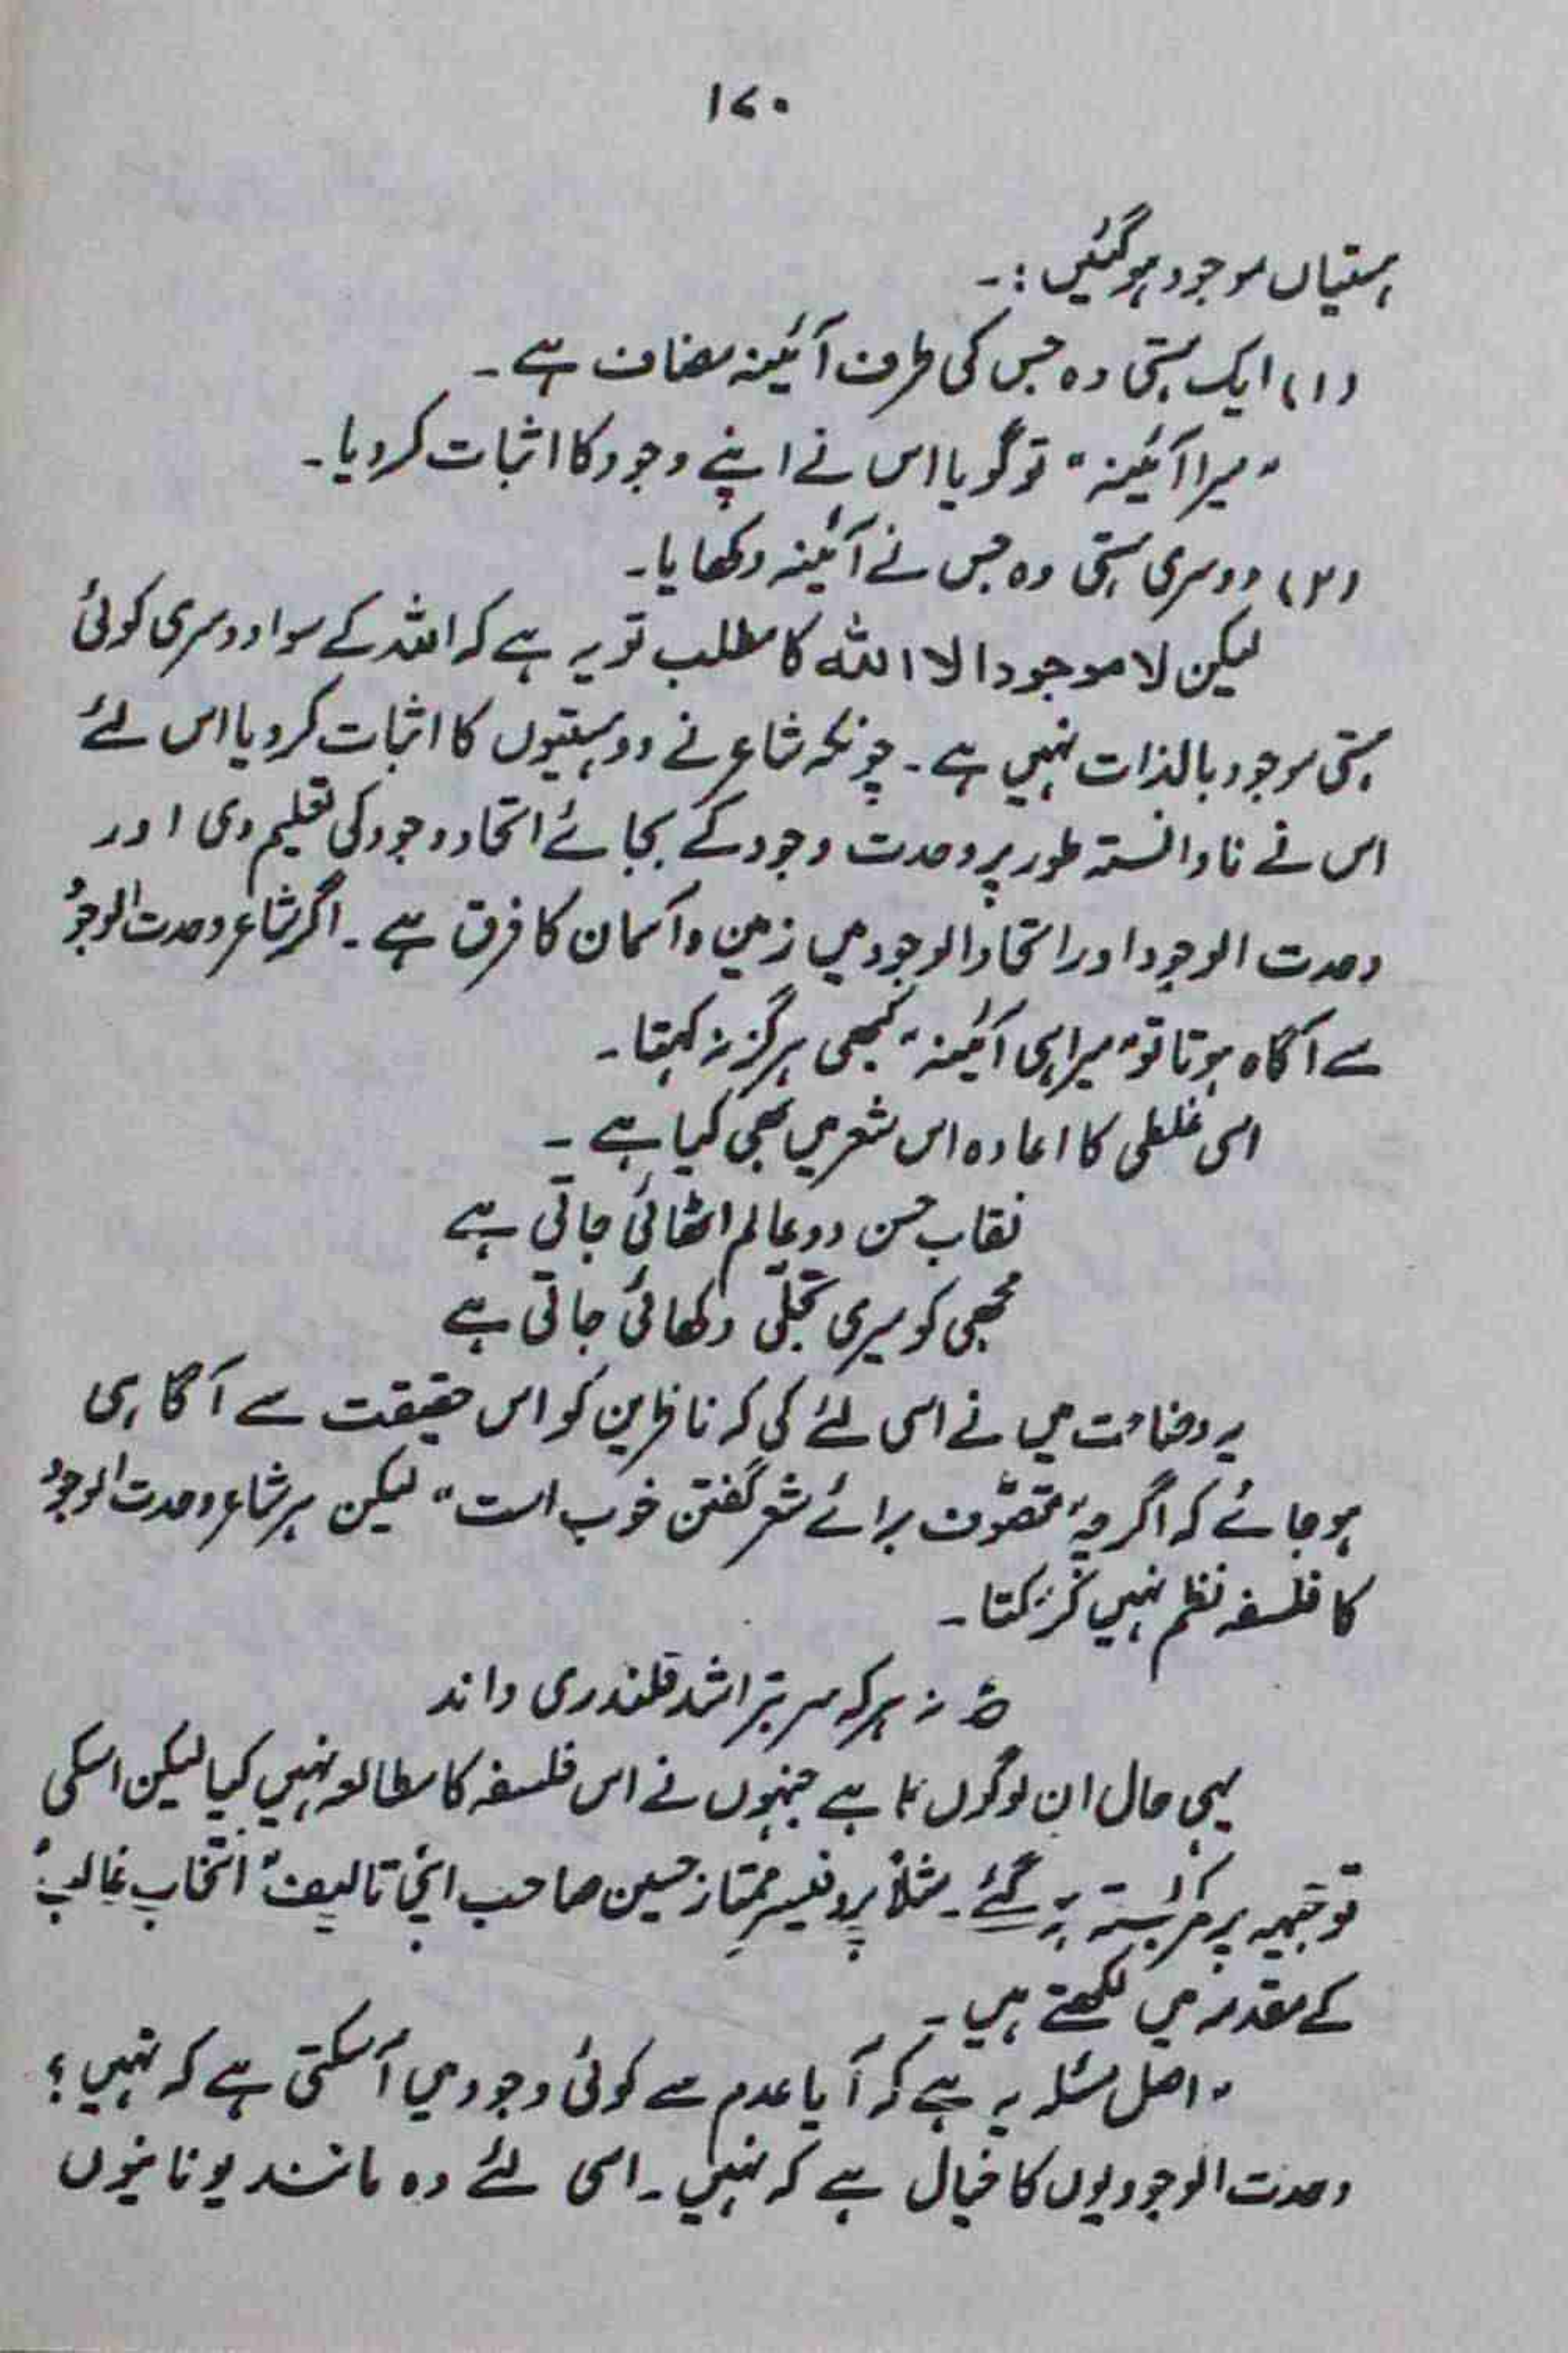 ۱۷۰
ہستیاں موجود ہوگئیں :۔
(۱) ایک ہستی وہ جس کی طرف آئینہ مضاف ہے ۔
"میرا آئینہ" تو گویا اس نے اپنے وجود کا اثبات کردیا۔
(۲) دوسری ہستی وہ جس نے آئینہ دکھایا۔
لیکن لا موجود الا اللہ کا مطلب تو یہ ہے کہ اللہ کے سوا دوسری کوئی
ہستی موجود بالذات نہیں ہے ۔ چونکہ شاعر نے دو ہستیوں کا اثبات کر دیا اس لئے
اس نے نادانستہ طور پر وحدت وجود کے بجائے اتحاد وجود کی تعلیم دی اور
وحدت الوجود اور اتحاد الوجود میں زمین و آسمان کا فرق ہے ۔ اگر شاعر وحدت الوجود
سے آگاہ ہوتا تو "میرا ہی آئینہ" کبھی ہرگز نہ کہتا ۔
اسی غلطی کا اعادہ اس شعر میں بھی کیا ہے ۔
نقاب حسن دو عالم اٹھائی جاتی ہے
مجھی کو میری تجلّی دکھائی جاتی ہے
یہ وضاحت میں نے اسی لئے کی کہ ناظرین کو اس حقیقت سے آگاہی
ہو جائے کہ اگرچہ "تصوّف برائے شعر گفتن خوب است" لیکن ہر شاعر وحدت الوجود
کا فلسفہ نظم نہیں کر سکتا ۔
ع نہ ہر کہ سر بتراشد قلندری داند
یہی حال ان لوگوں کا ہے جنہوں نے اس فلسفہ کا مطالعہ نہیں کیا لیکن اسکی
توجیہہ پر کمربستہ ہو گئے ۔ مثلاً پروفیسر ممتاز حسین صاحب اپنی تالیف "انتخابِ غالب"
کے مقدمہ میں لکھتے ہیں ۔
"اصل مسئلہ یہ ہے کہ آیا عدم سے کوئی وجود میں آسکتی ہے کہ نہیں ؟
وحدت الوجودیوں کا خیال ہے کہ نہیں ۔ اسی لئے وہ مانند یونانیوں